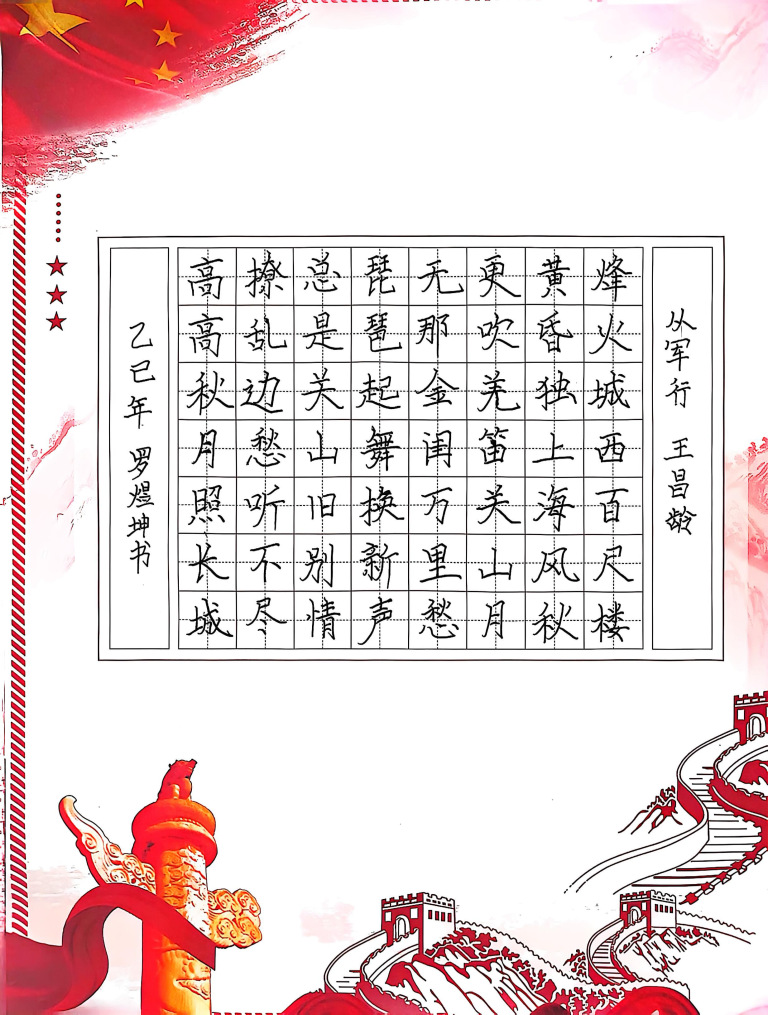 从军行 王昌龄
烽火城西百尺楼
黄昏独上海风秋
更吹羌笛关山月
无那金闺万里愁
琵琶起舞换新声
总是关山旧别情
撩乱边愁听不尽
高高秋月照长城
乙巳年 罗煜坤书